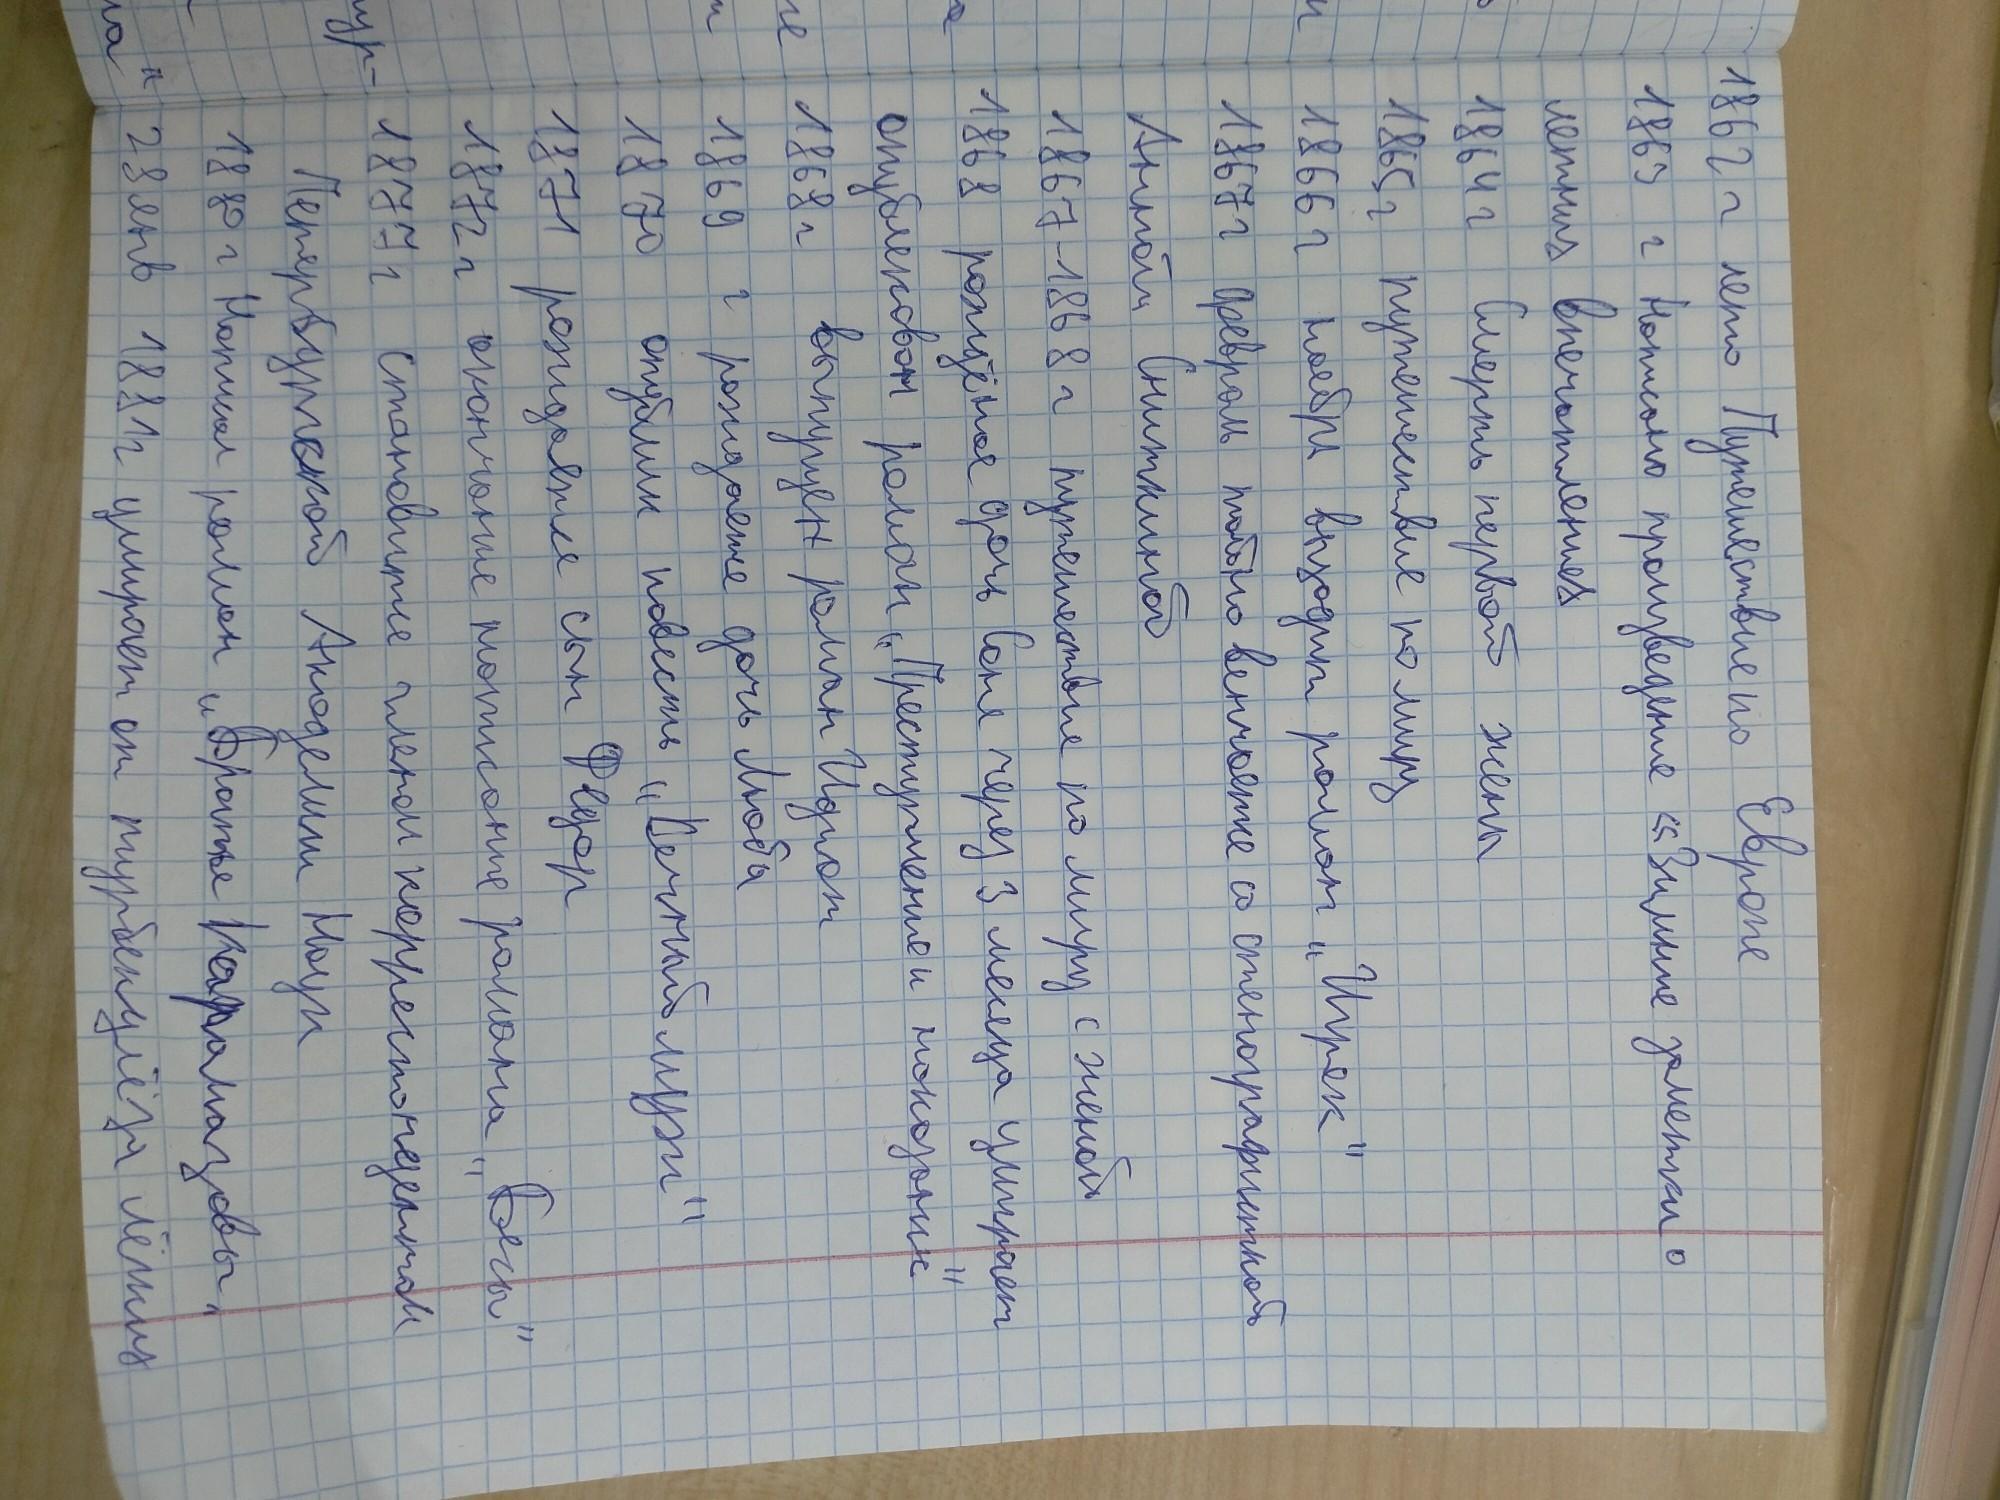 1862 г лето Путешествие по Европе
1863 г Написано произведение «Зимние заметки о
летних впечатлениях
1864 г Смерть первой жены
1865 г путешествие по миру
1866 г ноябрь выходит роман „Игрек"
1867 г февраль тайно венчается со стенографисткой
Анной Сниткиной
1867-1868 г путешествие по миру с женой
1868 рождёная дочь Соня через 3 месяца умирает
опубликован роман „Преступлением наказание"
1868 г выпущен роман Идиот
1869 г рождение дочь Люба
1870 опублик повесть „Вечный муж"
1871 рождается сын Федор
1872 г окончание написание романа „Бесы"
1877 г становится членом корреспондентом
Петербургской Академии Наук
1880 г Написал роман „Братье Карамазовы"
28 янв 1881 г умирает от туберкулёза лёгких